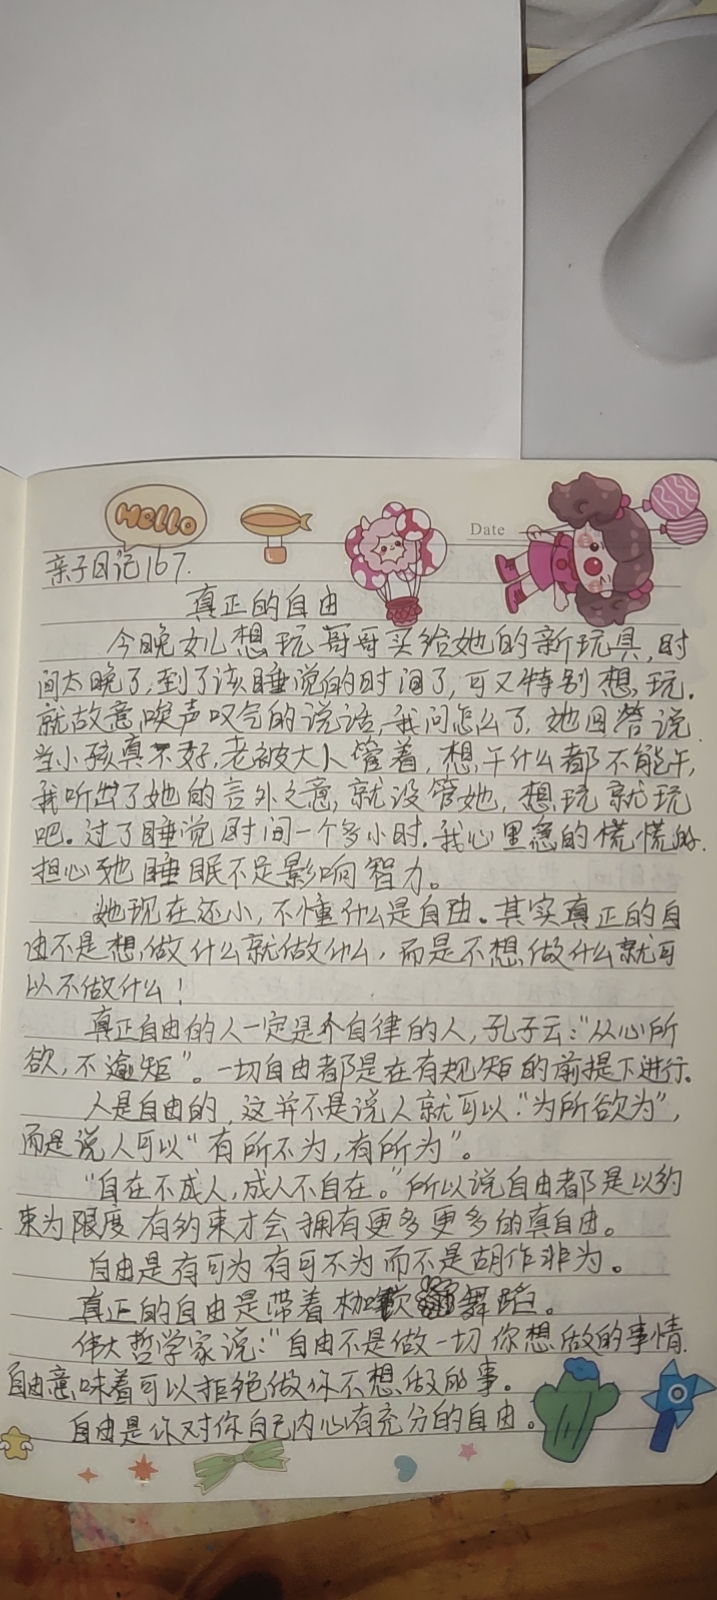 Hello
Date
亲子日记167.
真正的自由
今晚女儿想玩哥哥买给她的新玩具,时
间太晚了,到了该睡觉的时间了,可又特别想玩.
就故意唉声叹气的说话,我问怎么了,她回答说
当小孩真不好,老被大人管着,想干什么都不能干,
我听出了她的言外之意,就没管她,想玩就玩
吧。过了睡觉时间一个多小时.我心里急的慌慌的.
担心她睡眠不足影响智力。
她现在还小,不懂什么是自由。其实真正的自
由不是想做什么就做什么,而是不想做什么就可
以不做什么!
真正自由的人一定是个自律的人,孔子云:"从心所
欲,不逾矩"。一切自由都是在有规矩的前提下进行.
人是自由的,这并不是说人就可以"为所欲为",
而是说人可以"有所不为,有所为"。
"自在不成人,成人不自在。"所以说自由都是以约
束为限度有约束才会拥有更多更多的真自由。
自由是有可为有可不为而不是胡作非为。
真正的自由是带着枷 舞蹈。
伟大哲学家说:"自由不是做一切你想做的事情.
自由意味着可以拒绝做你不想做的事。
自由是你对你自己内心有充分的自由。